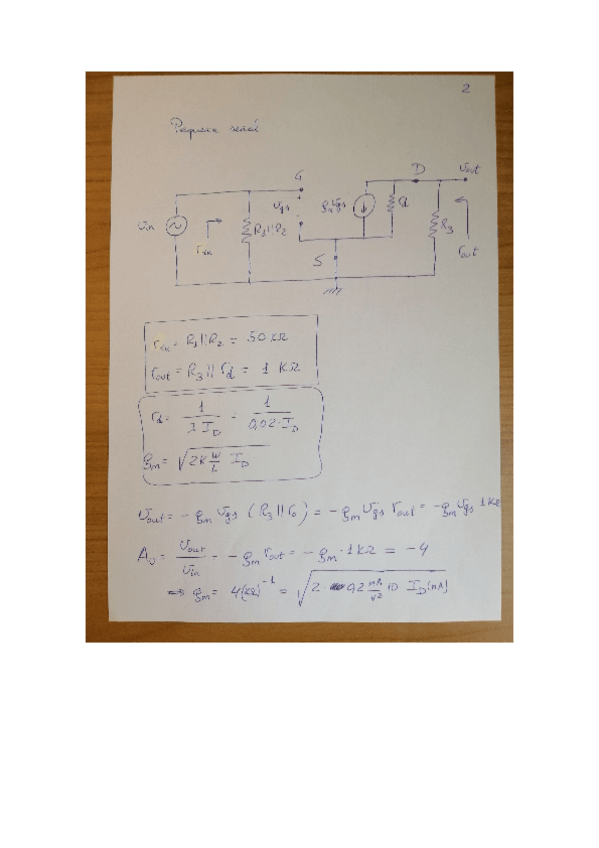 2
Pequeña señal
G
D
vout
vin
rin
R1||R2
vgs
gm vgs
rd
R3
rout
S
rin = R1||R2 = 50 KΩ
rout = R3 || rd = 1 KΩ
rd = 1/(λ ID) = 1/(0,02·ID)
gm = √(2K W/L ID)
vout = - gm vgs (R3||ro) = - gm vgs rout = - gm vgs 1KΩ
Av = vout/vin = - gm rout = - gm · 1KΩ = -4
⇒ gm = 4(KΩ)⁻¹ = √(2 · 0,2 mA/V² 10 ID(mA))